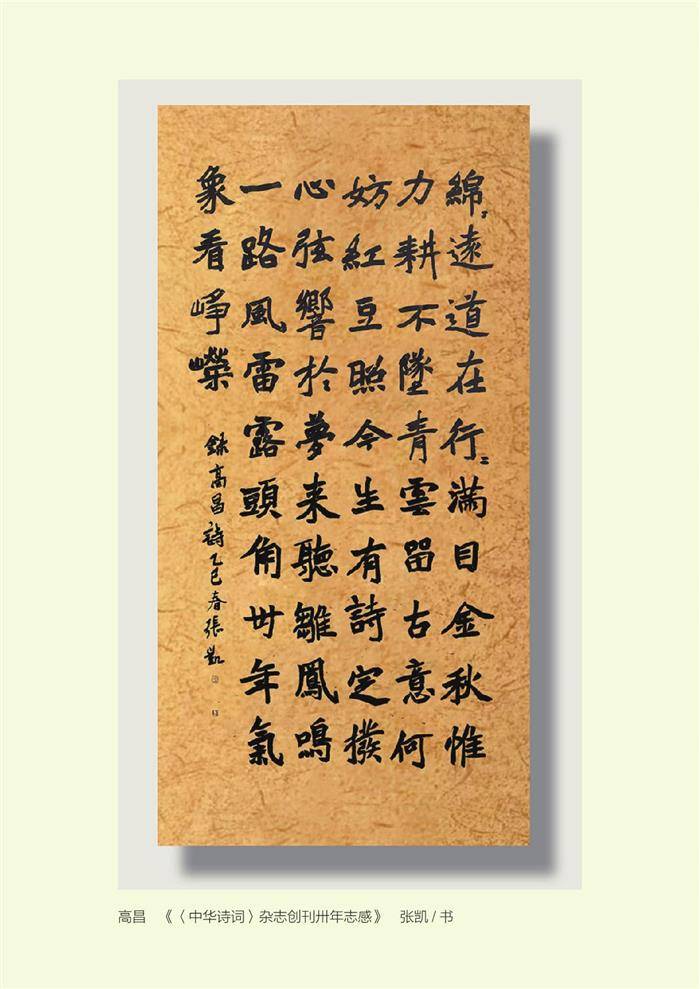 綿〻遠道在行〻滿目金秋惟
力耕不墜青雲留古意何
妨紅豆照今生有詩定撥
心弦響於夢来聽雛鳳鳴
一路風雷露頭角卅年氣
象看崢嶸
録高昌詩乙巳春張凱
高昌 《〈中华诗词〉杂志创刊卅年志感》 张凯 / 书